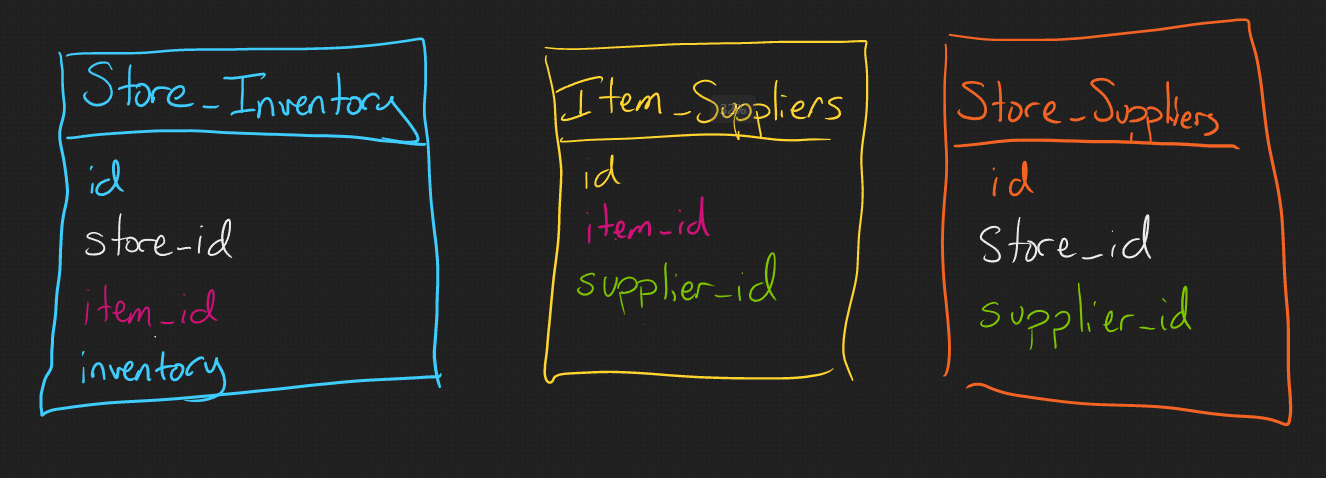 Store_Inventory
id
store_id
item_id
inventory
Item_Suppliers
id
item_id
supplier_id
Store_Suppliers
id
Store_id
supplier_id